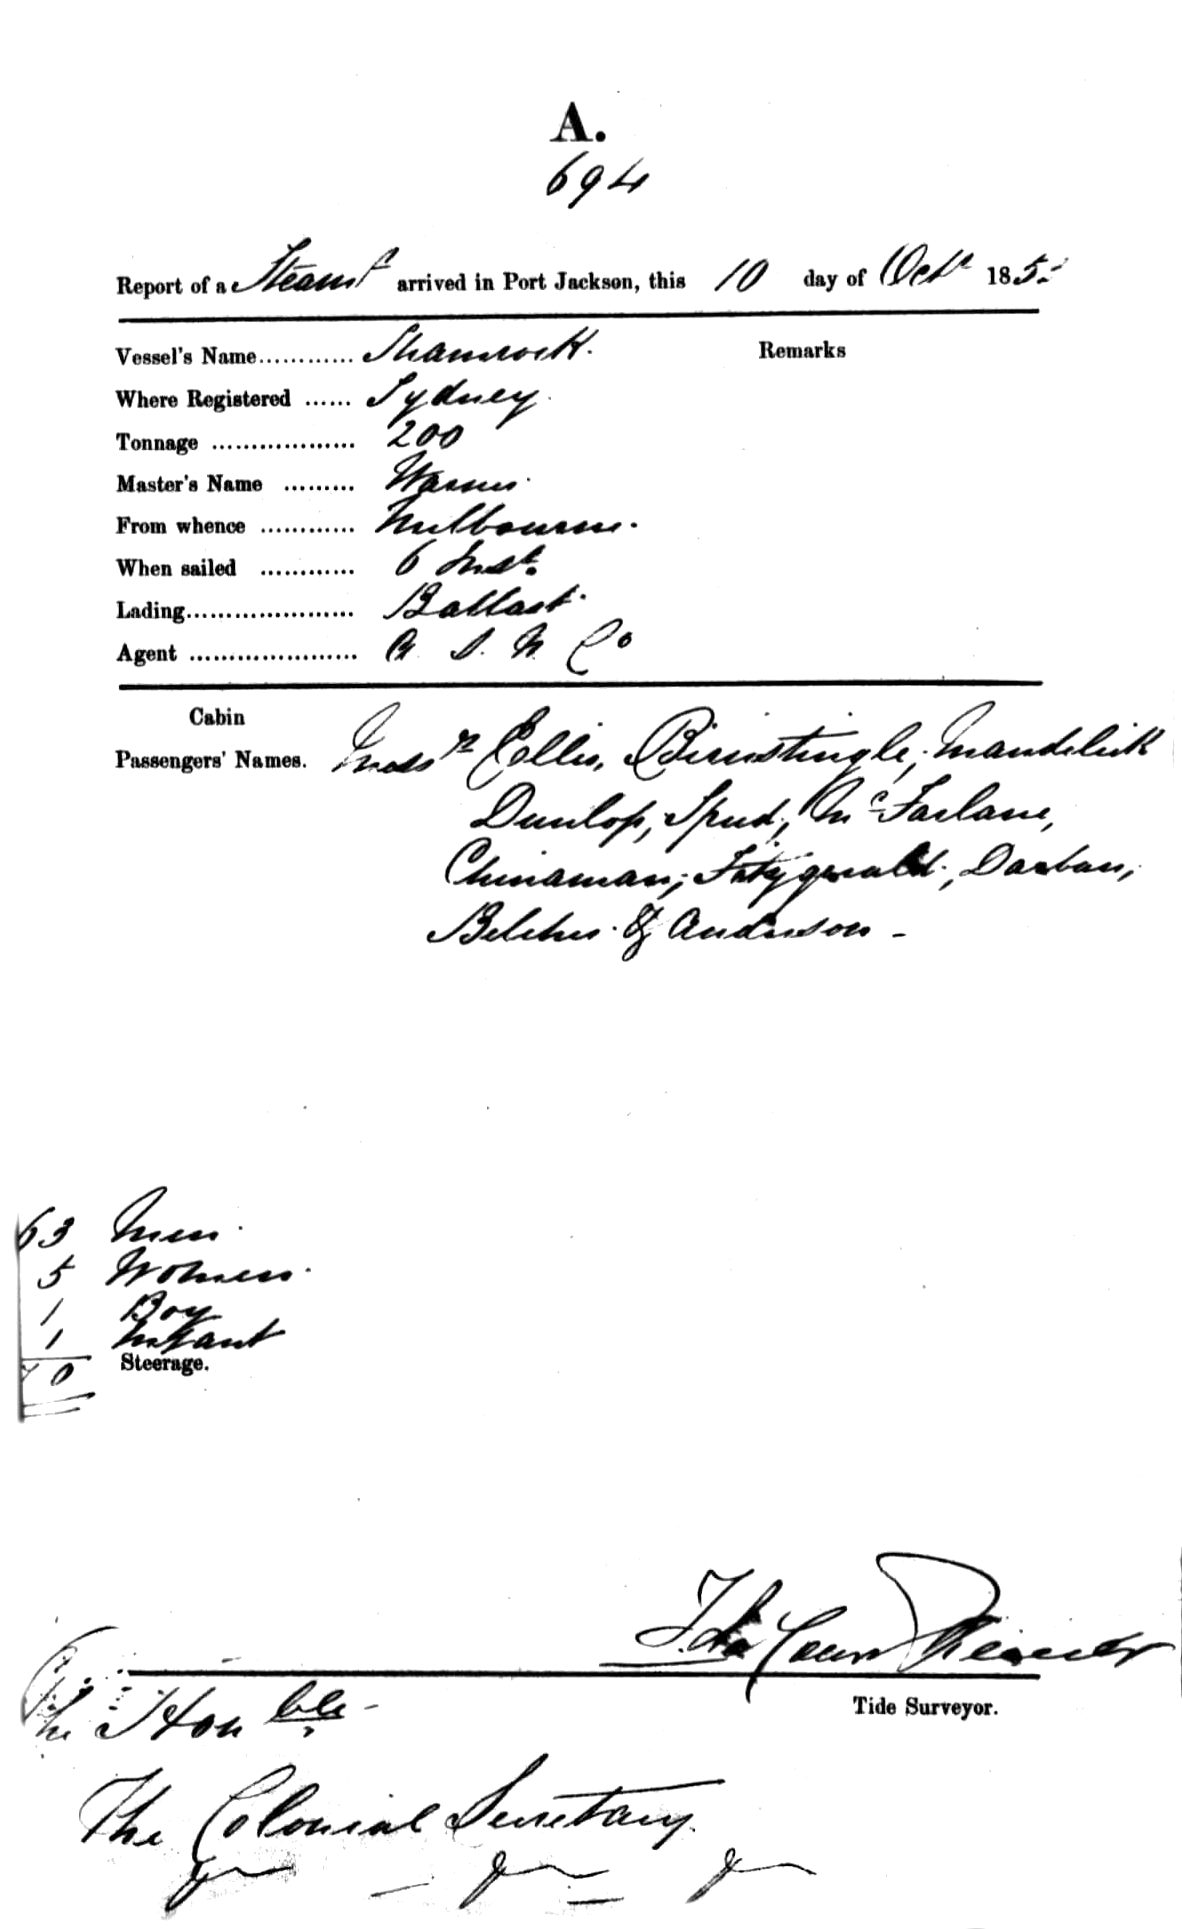 A.
694
Report of a Steamr arrived in Port Jackson, this 10 day of Octr 185
Vessel's Name............ Shamrock. Remarks
Where Registered ...... Sydney.
Tonnage .................. 200
Master's Name ......... Warner.
From whence ............ Melbourne.
When sailed ............ 6 Inst.
Lading..................... Ballast.
Agent ..................... A. S. N. Co
Cabin
Passengers' Names. Messrs Ellis, Birnstingle, Mandelick
Dunlop, Spud, McFarlane,
Chinaman, Fitzgerald, Darban,
Belcher. & Anderson -
63 Men.
5 Women.
1 Boy
1 Infant
Steerage.
70
Tide Surveyor.
The Honble
The Colonial Secretary.